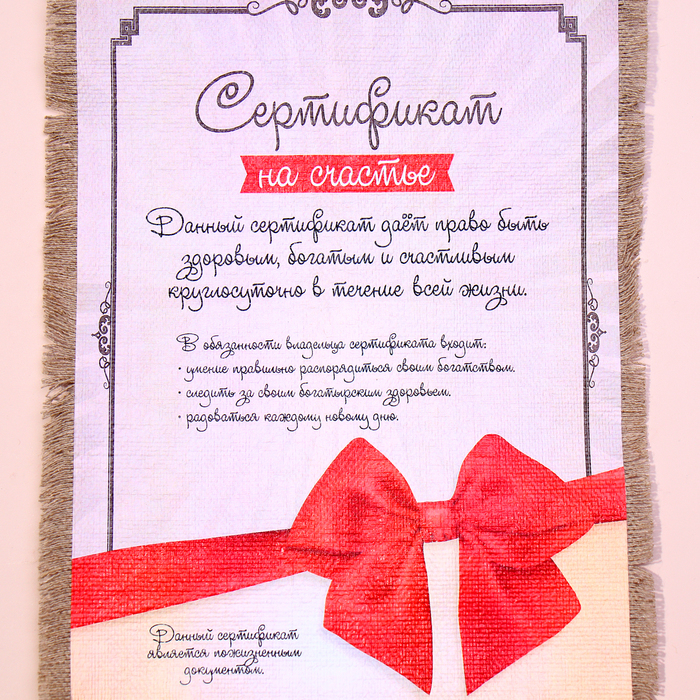 Сертификат
на счастье
Данный сертификат даёт право быть
здоровым, богатым и счастливым
круглосуточно в течение всей жизни.
В обязанности владельца сертификата входит:
• умение правильно распорядиться своим богатством.
• следить за своим богатырским здоровьем.
• радоваться каждому новому дню.
Данный сертификат
является пожизненным
документом.